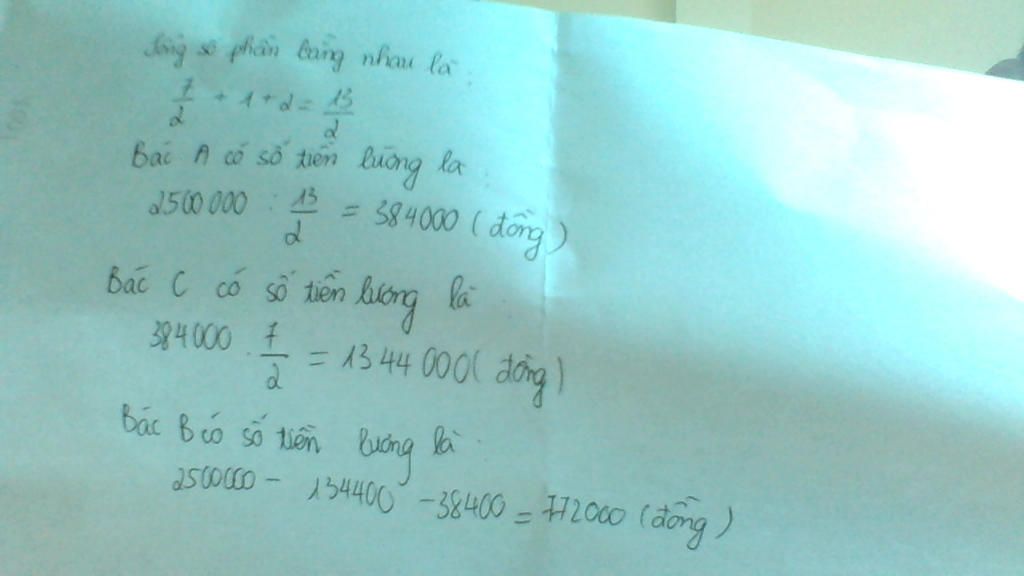 Tổng số phần bằng nhau là :
7/2 + 1 + 2 = 13/2
Bác A có số tiền lương là :
2500 000 : 13/2 = 384000 ( đồng )
Bác C có số tiền lương là
384000 . 7/2 = 1344 000 ( đồng )
Bác B có số tiền lương là :
2500000 - 134400 - 38400 = 772000 ( đồng )